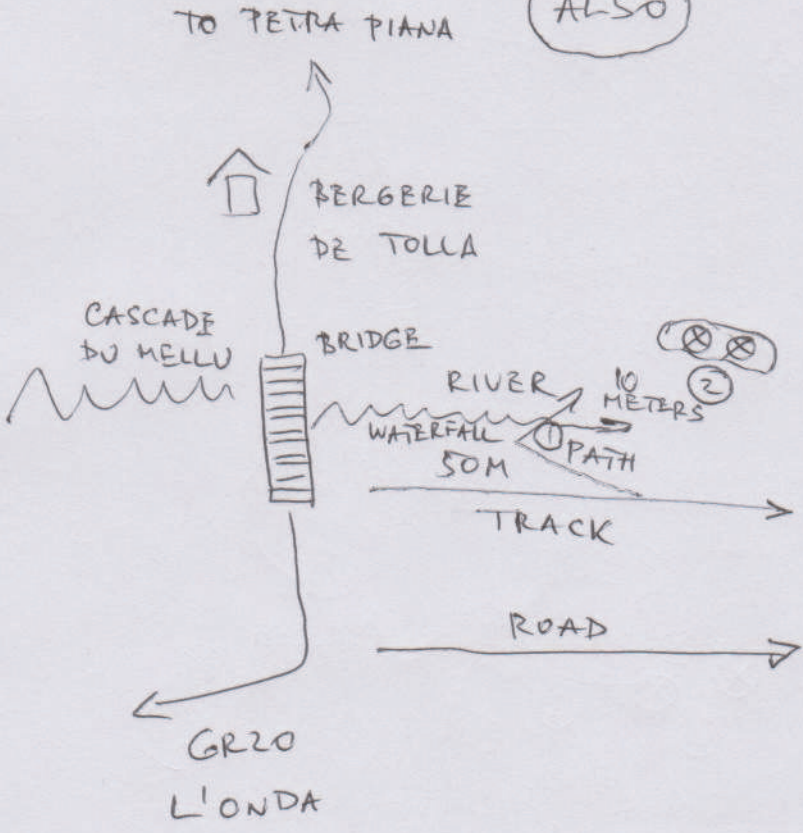 TO PETRA PIANA
ALSO
BERGERIE
DE TOLLA
CASCADE
DU MELLU
BRIDGE
RIVER
10
METERS
2
WATERFALL
50M
1
PATH
TRACK
ROAD
GR20
L'ONDA